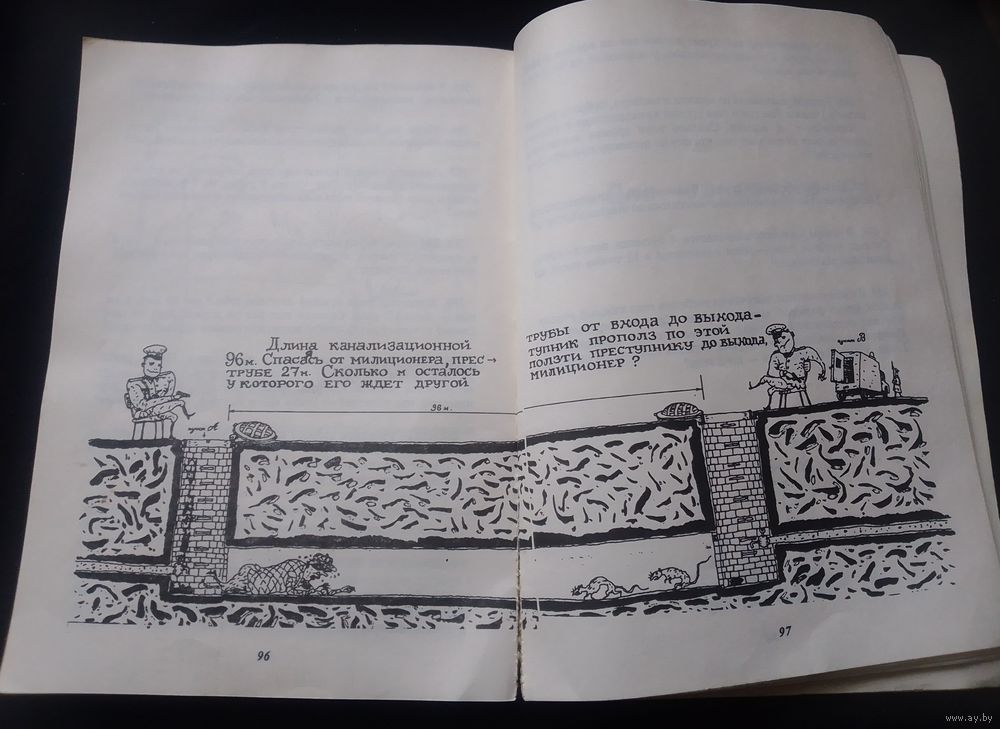 Длина канализационной
96м. Спасась от милиционера, прес→
трубе 27м. Сколько м осталось
у которого его ждет другой
трубы от входа до выхода-
тупник прополз по этой
ползти преступнику до выхода,
милиционер?
пункт В
96 м.
пункт А
96
97
www.ay.by